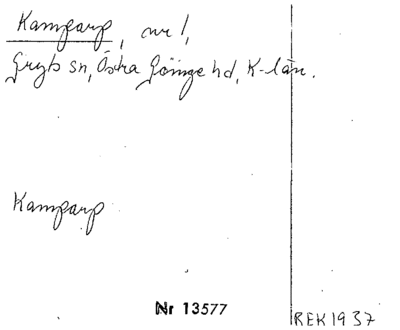 Kamparp, nr 1,
Gryts sn, Östra Göinge hd, K-län.
Kamparp
Nr 13577
REK 1937